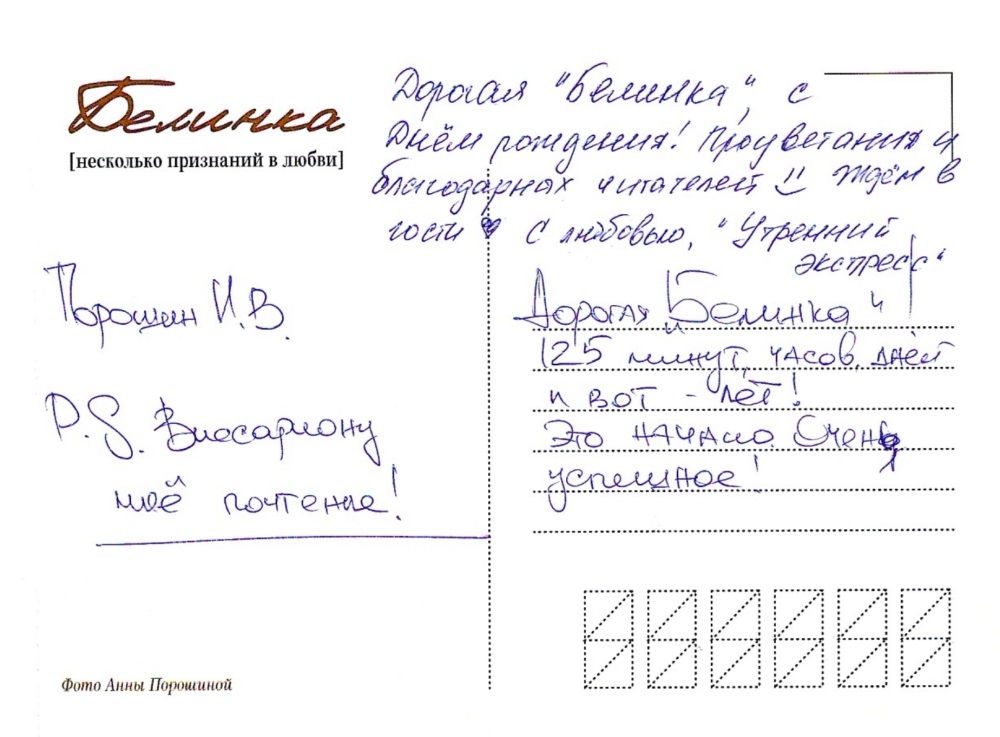 Белинка
[несколько признаний в любви]
Дорогая "Белинка", с
Днём рождения! Процветания и
благодарных читателей Ждём в
гости С любовью, "Утренний
экспресс"
Порошин И.В.
P.S. Виссариону
моё почтение!
Дорогая "Белинка"
125 минут, часов, дней
и вот - лет!
Это начало. Очень
успешное!
Фото Анны Порошиной